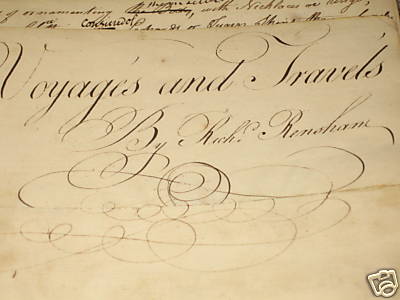 of ornamenting with Necklaces or
confined or
Voyages and Travels
By Rich.d Renshaw